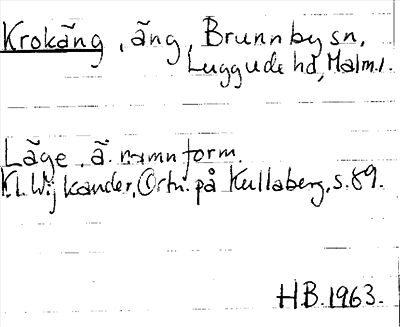 Krokäng, äng, Brunnby sn,
Luggude hd, Malm. l.
Läge, ä. namnform.
Kl. Wijkander, Ortn. på Kullaberg, s. 89.
HB. 1963.